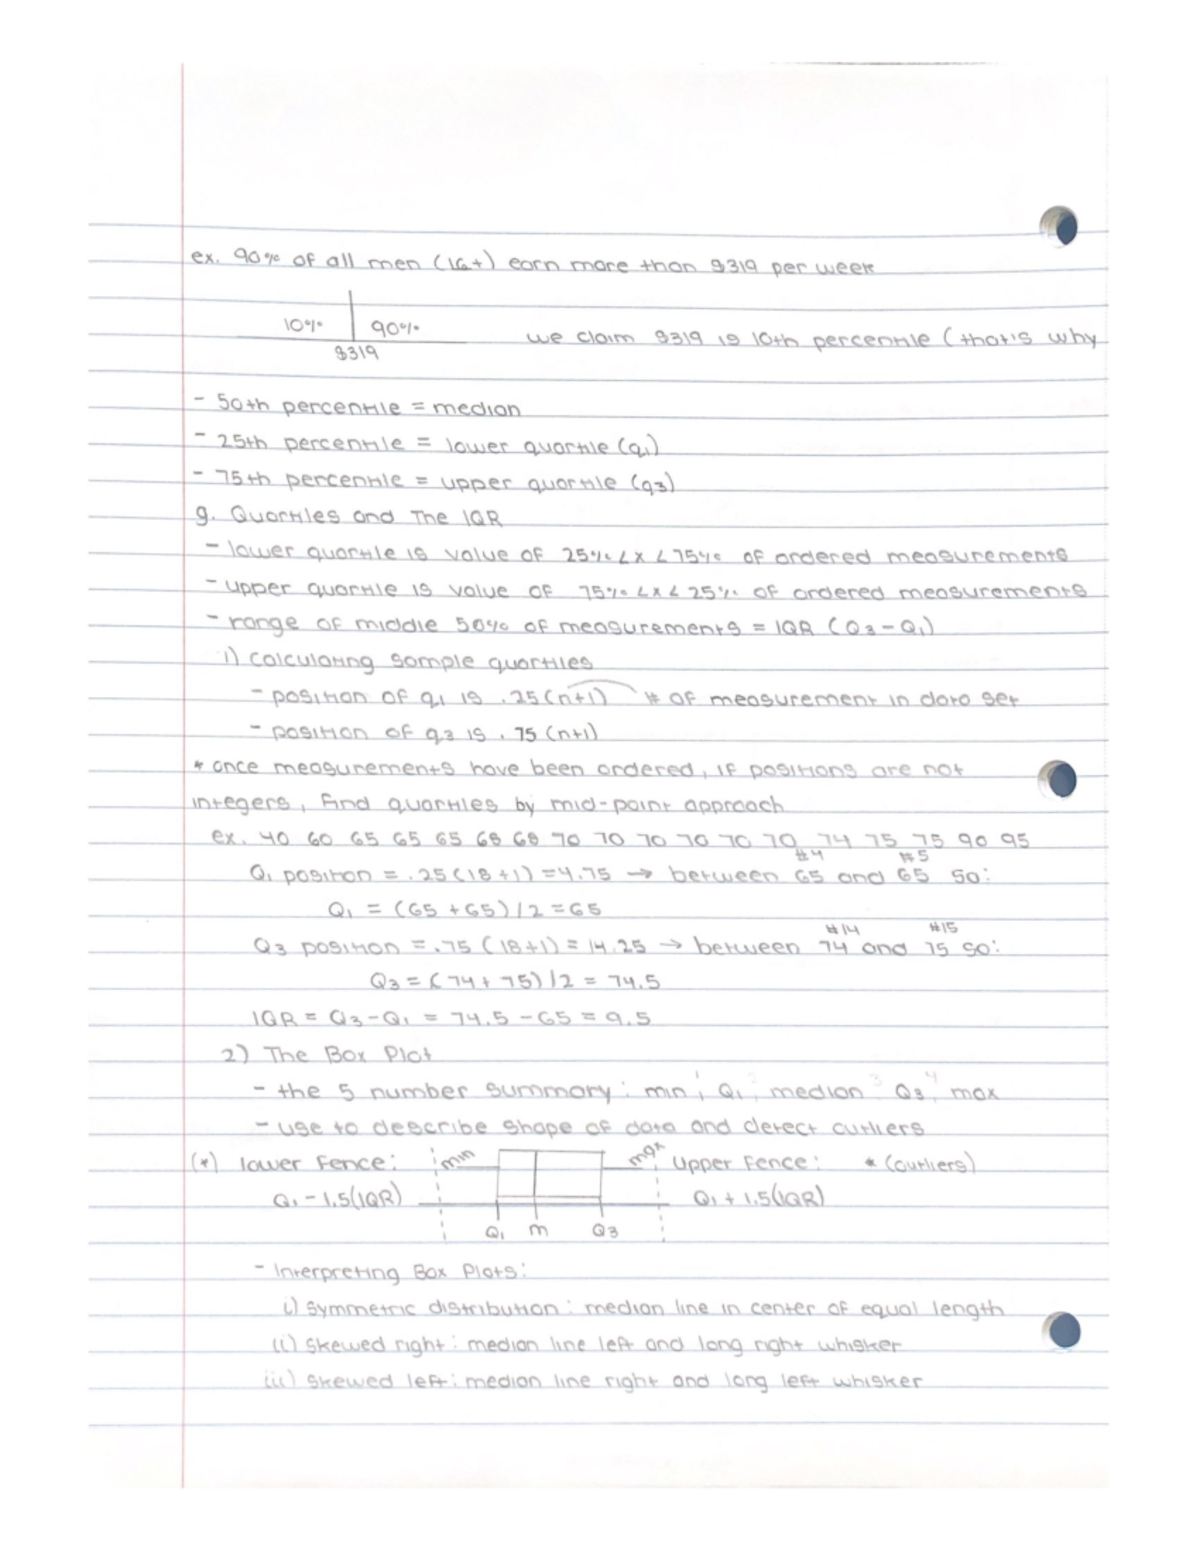 ex. 90% of all men (16+) earn more than $319 per week
10% 90% we claim $319 is 10th percentile (that's why
$319
- 50th percentile = median
- 25th percentile = lower quartile (q1)
- 75th percentile = upper quartile (q3)
g. Quartiles and The IQR
- lower quartile is value of 25% < x < 75% of ordered measurements
- upper quartile is value of 75% < x < 25% of ordered measurements
- range of middle 50% of measurements = IQR (Q3 - Q1)
1) calculating sample quartiles
- position of q1 is .25(n+1) # of measurement in data set
- position of q3 is .75 (n+1)
* once measurements have been ordered, if positions are not
integers, find quartiles by mid-point approach
ex. 40 60 65 65 65 68 68 70 70 70 70 70 70 74 75 75 90 95
#4 #5
Q1 position = .25(18+1) = 4.75 → between 65 and 65 so:
Q1 = (65+65)/2 = 65
#14 #15
Q3 position = .75 (18+1) = 14.25 → between 74 and 75 so:
Q3 = (74+75)/2 = 74.5
IQR = Q3 - Q1 = 74.5 - 65 = 9.5
2) The Box Plot
- the 5 number summary: min, Q1, median, Q3, max
- use to describe shape of data and detect outliers
(*) lower fence: min max upper fence: * (outliers)
Q1 - 1.5(IQR) Q1 + 1.5(IQR)
Q1 m Q3
- Interpreting Box Plots:
i) symmetric distribution: median line in center of equal length
ii) skewed right: median line left and long right whisker
iii) skewed left: median line right and long left whisker